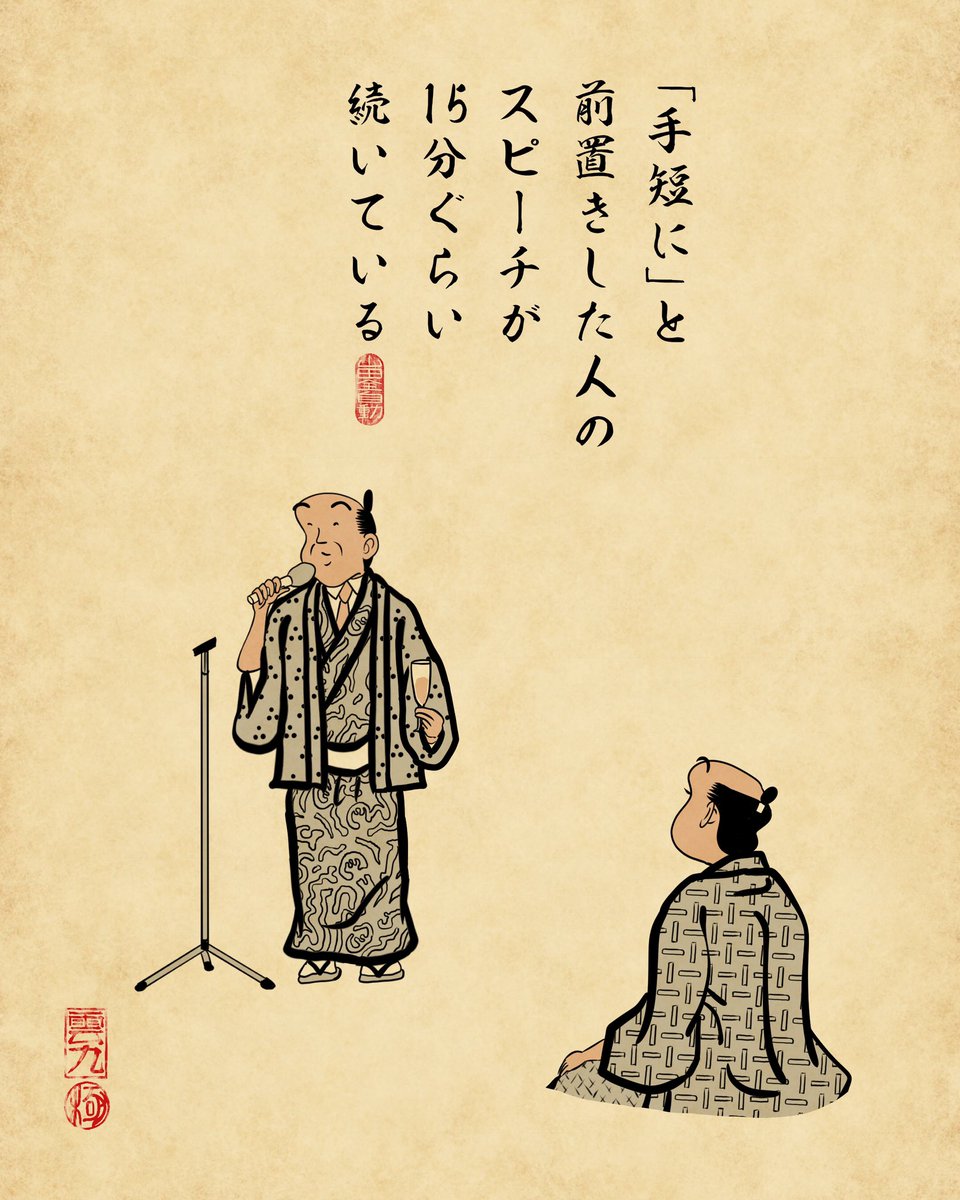 「手短に」と
前置きした人の
スピーチが
15分ぐらい
続いている